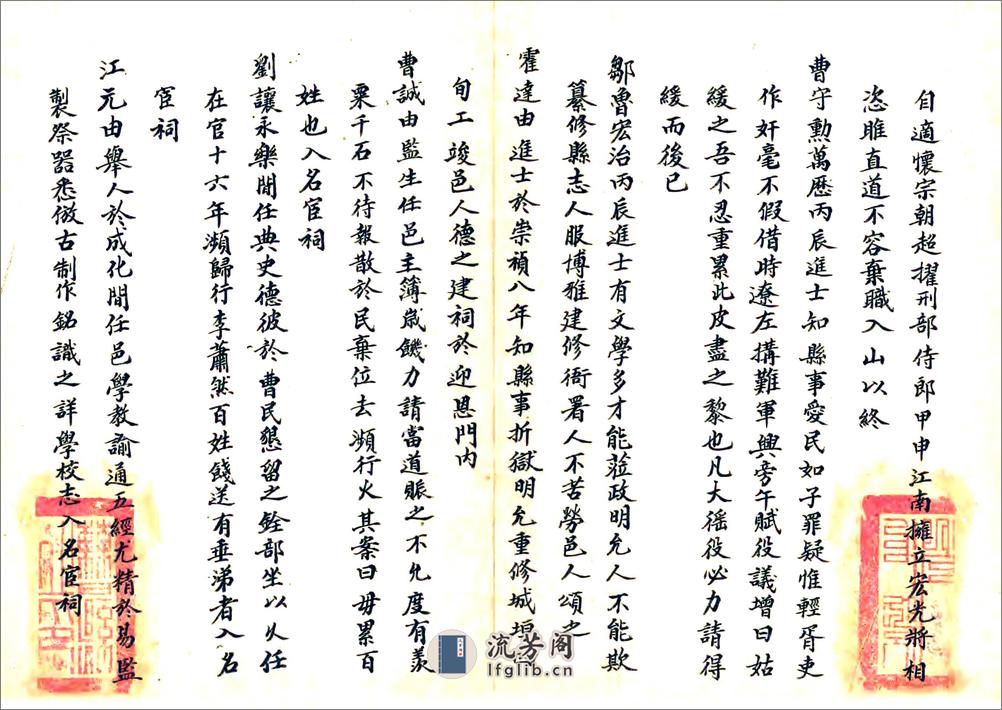 自適懷宗朝超擢刑部侍郎甲申江南擁立宏光將相
恣睢直道不容棄職入山以終
曹守勳萬歷丙辰進士知縣事愛民如子罪疑惟輕胥吏
作奸毫不假借時遼左搆難軍興旁午賦役議增曰姑
緩之吾不忍重累此皮盡之黎也凡大徭役必力請得
緩而後已
鄒魯宏治丙辰進士有文學多才能蒞政明允人不能欺
纂修縣志人服博雅建修衙署人不苦勞邑人頌之
霍達由進士於崇禎八年知縣事折獄明允重修城垣
旬工竣邑人德之建祠於迎恩門內
曹誠由監生任邑主簿歲饑力請當道賑之不允度有羨
粟千石不待報散於民棄位去瀕行火其案曰毋累百
姓也入名宦祠
劉讓永樂間任典史德彼於曹民懇留之銓部坐以久任
在官十六年瀕歸行李蕭然百姓餞送有垂涕者入名
宦祠
江元由舉人於成化間任邑學教諭通五經尤精於易監
製祭器悉倣古制作銘識之詳學校志入名宦祠
流芳阁
lfglib.cn